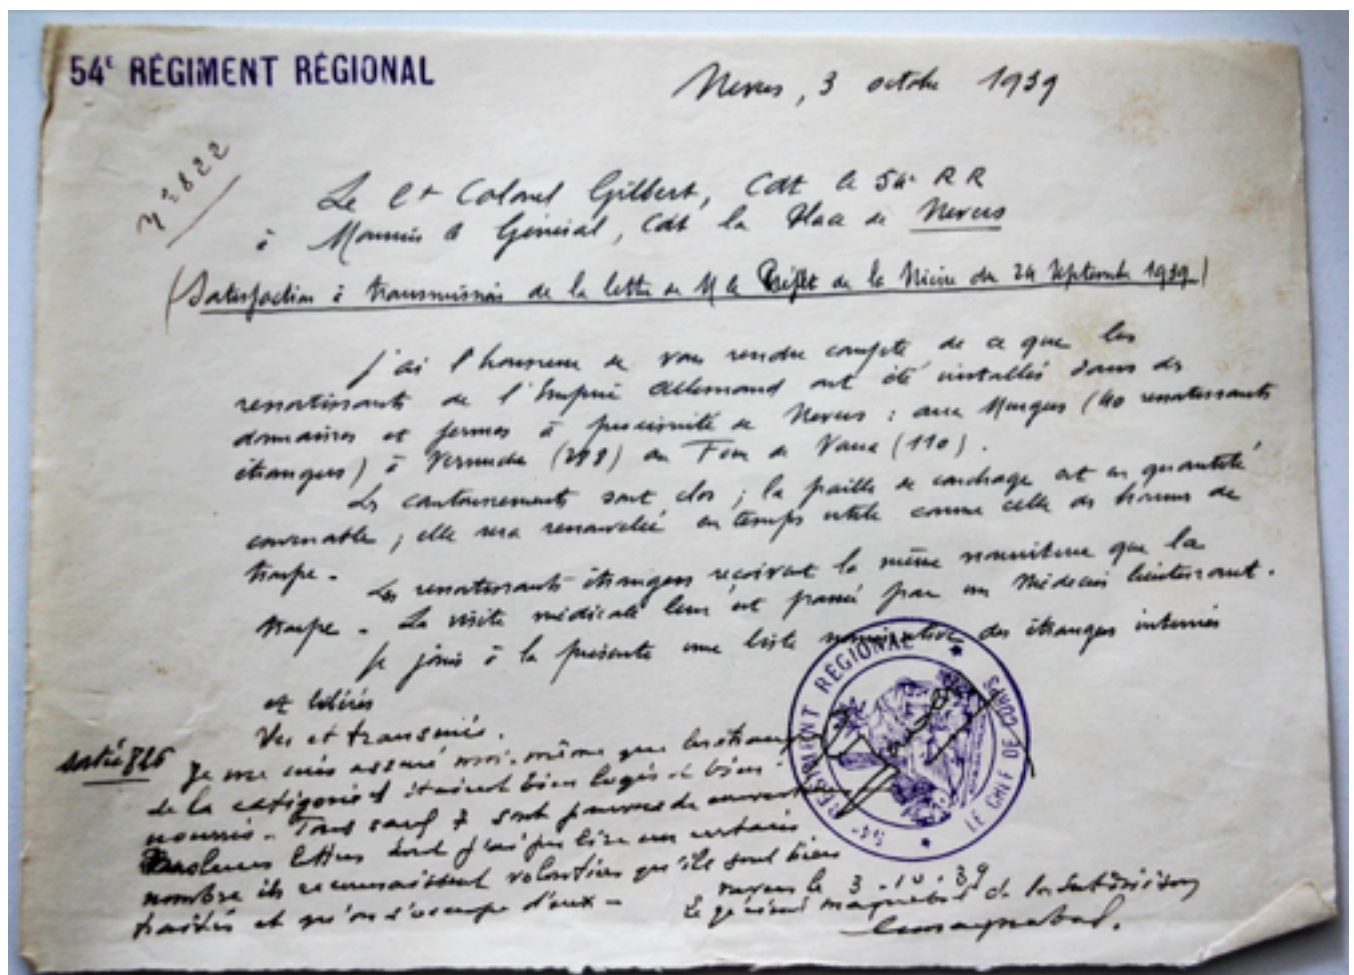 54e RÉGIMENT RÉGIONAL
Nevers, 3 octobre 1939
n° 822
Le Lt Colonel Gilbert, Cdt le 54e R R
à Monsieur le Général, Cdt la Place de Nevers
(Satisfaction à transmission de la lettre de M le Préfet de la Nièvre du 24 Septembre 1939)
J'ai l'honneur de vous rendre compte de ce que les
ressortissants de l'Empire Allemand ont été installés dans des
domaines et fermes à proximité de Nevers : aux (40 ressortissants
étrangers) à Vernuche (298) au Four de Vaux (110).
Les cantonnements sont clos ; la paille de couchage est en quantité
convenable ; elle sera renouvelée en temps utile comme celle des hommes de
troupe.
Les ressortissants étrangers reçoivent la même nourriture que la
troupe. La visite médicale leur est passée par un Médecin lieutenant.
Je joins à la présente une liste nominative des étrangers internés
et libérés
54e RÉGIMENT RÉGIONAL
LE CHEF DE CORPS
Vu et transmis.
Je me suis assuré moi-même que les étrangers
de la catégorie étaient bien logés et bien
nourris - Tous sauf 7 sont pourvus de couvertures
Dans leurs lettres dont j'ai pu lire un certain
nombre ils reconnaissent volontiers qu'ils sont bien
traités et qu'on s'occupe d'eux -
Nevers le 3.10.39
Le général de la Subdivision